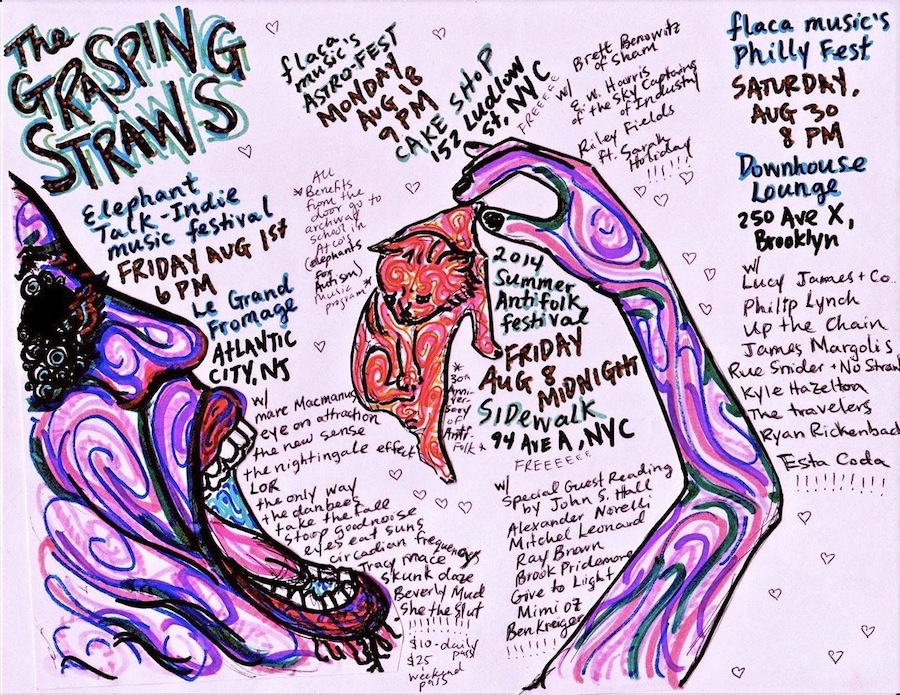 The
GRASPING
STRAWS
Elephant
Talk-Indie
music festival
FRIDAY AUG 1st
6 PM
Le Grand
Fromage
ATLANTIC
CITY, NJ
w/
marc Macmanus
eye on attraction
the new sense
the nightingale effect
LOR
the only way
the danbees
take the fall
stoop goodnoise
eyes eat suns
circadian frequencys
tracy mace
skunk daze
Beverly Mud
She the Slut
!!!!!!!!!!
$10-daily
pass
$25
weekend
pass
*All
Benefits
from the
door go to
archway
school in
Atco's
(elephants
for
Autism)
music
program*
flaca
music's
ASTRO-FEST
MONDAY
AUG 18
9 PM
CAKE SHOP
152 Ludlow
St, NYC
FREEEEE
w/
Brett Berowitz
of Sham
E. W. Harris
of the Sky Captains
of Industry
Riley Fields
ft. Sarah
Holiday
!!!!!!
2014
Summer
Antifolk
festival
FRIDAY
AUG 8
MIDNIGHT
SIDewalk
94 AVE A, NYC
FREEEEEE
*
30th
Anni-
ver-
sary
of
Anti-
Folk*
w/
Special Guest Reading
by John S. Hall
Alexander Norelli
Mitchel Leonard
Ray Brown
Brook Pridemore
Give to Light
Mimi oz
Ben Kreiger
!!!!!!!!!
flaca music's
Philly Fest
SATURDAY,
AUG 30
8 PM
Downhouse
Lounge
250 Ave X,
Brooklyn
w/
Lucy James + Co..
Philip Lynch
Up the Chain
James Margolis
Rue Snider + No Straw
Kyle Hazelton
The travelers
Ryan Rickenbac
Esta Coda
!!!!!!!!!!